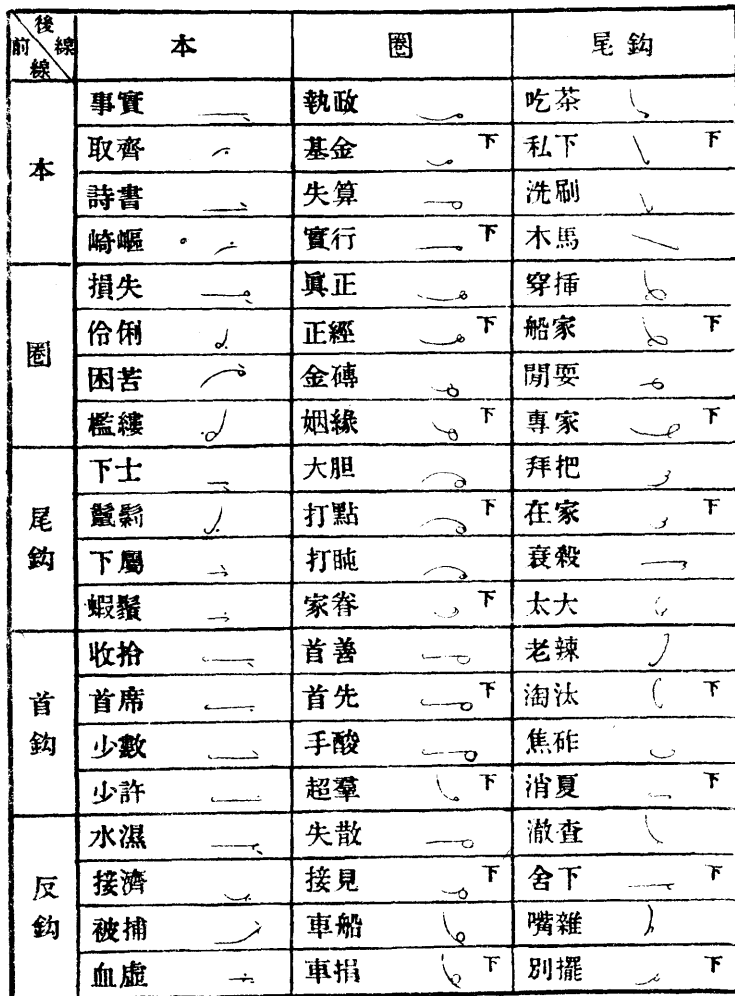 後線 前線 本 圈 尾鈎
本
事實 執政 吃茶
取齊 基金 下 私下 下
詩書 失算 洗刷
崎嶇 實行 下 木馬
圈
損失 眞正 穿揷
伶俐 正經 下 船家 下
困苦 金磚 閒耍
襤縷 姻緣 下 專家 下
尾鈎
下士 大胆 拜把
鬆 打點 下 在家 下
下屬 打盹 衰殺
蝦鬚 家眷 下 太大
首鈎
收拾 首善 老辣
首席 首先 下 淘汰 下
少數 手酸 焦砟
少許 超羣 下 消夏 下
反鈎
水濕 失散 澈查
接濟 接見 下 舍下 下
被捕 車船 嘴雜
血虛 車捐 下 別擺 下